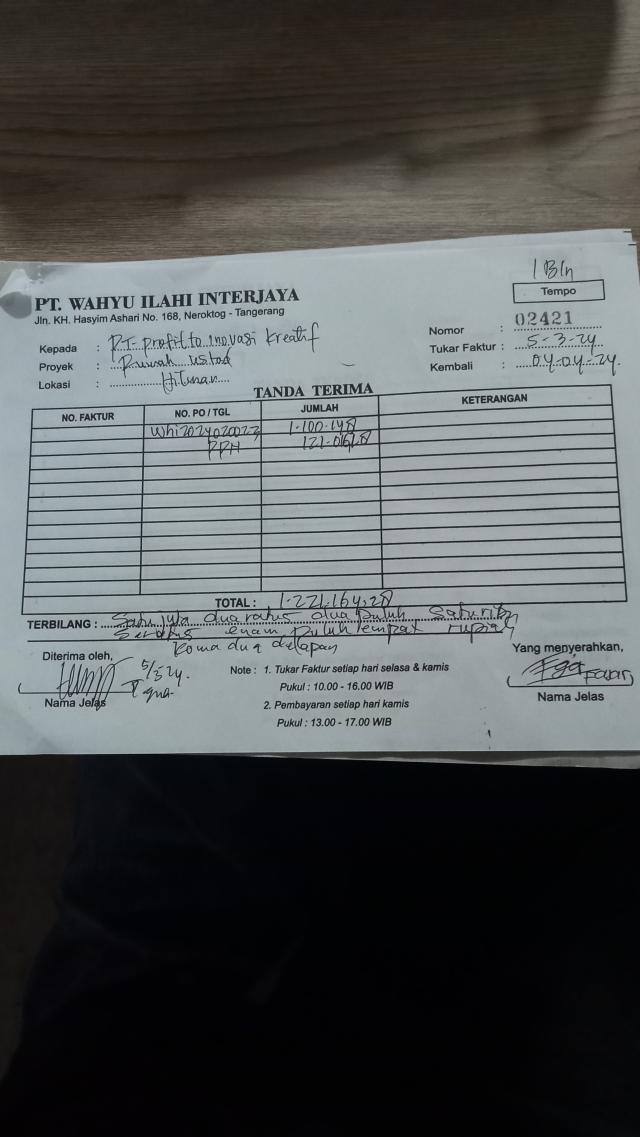 1 Bln
Tempo
PT. WAHYU ILAHI INTERJAYA
Jln. KH. Hasyim Ashari No. 168, Neroktog - Tangerang
Nomor : 02421
Kepada : PT. profitto inovasi kreatif
Tukar Faktur : 5-3-24
Proyek : Rumah ustad
Kembali : 04-04-24.
Lokasi :
TANDA TERIMA
NO. FAKTUR NO. PO / TGL JUMLAH KETERANGAN
Whi2024020023 1.100.148
PPH
TOTAL : 1.221.164,28
TERBILANG : Satu juta dua ratus dua puluh satu ribu
Seratus enam puluh empat rupiah
koma dua delapan
Diterima oleh,
5/3 24.
Nama Jelas
Note : 1. Tukar Faktur setiap hari selasa & kamis
Pukul : 10.00 - 16.00 WIB
2. Pembayaran setiap hari kamis
Pukul : 13.00 - 17.00 WIB
Yang menyerahkan,
Nama Jelas